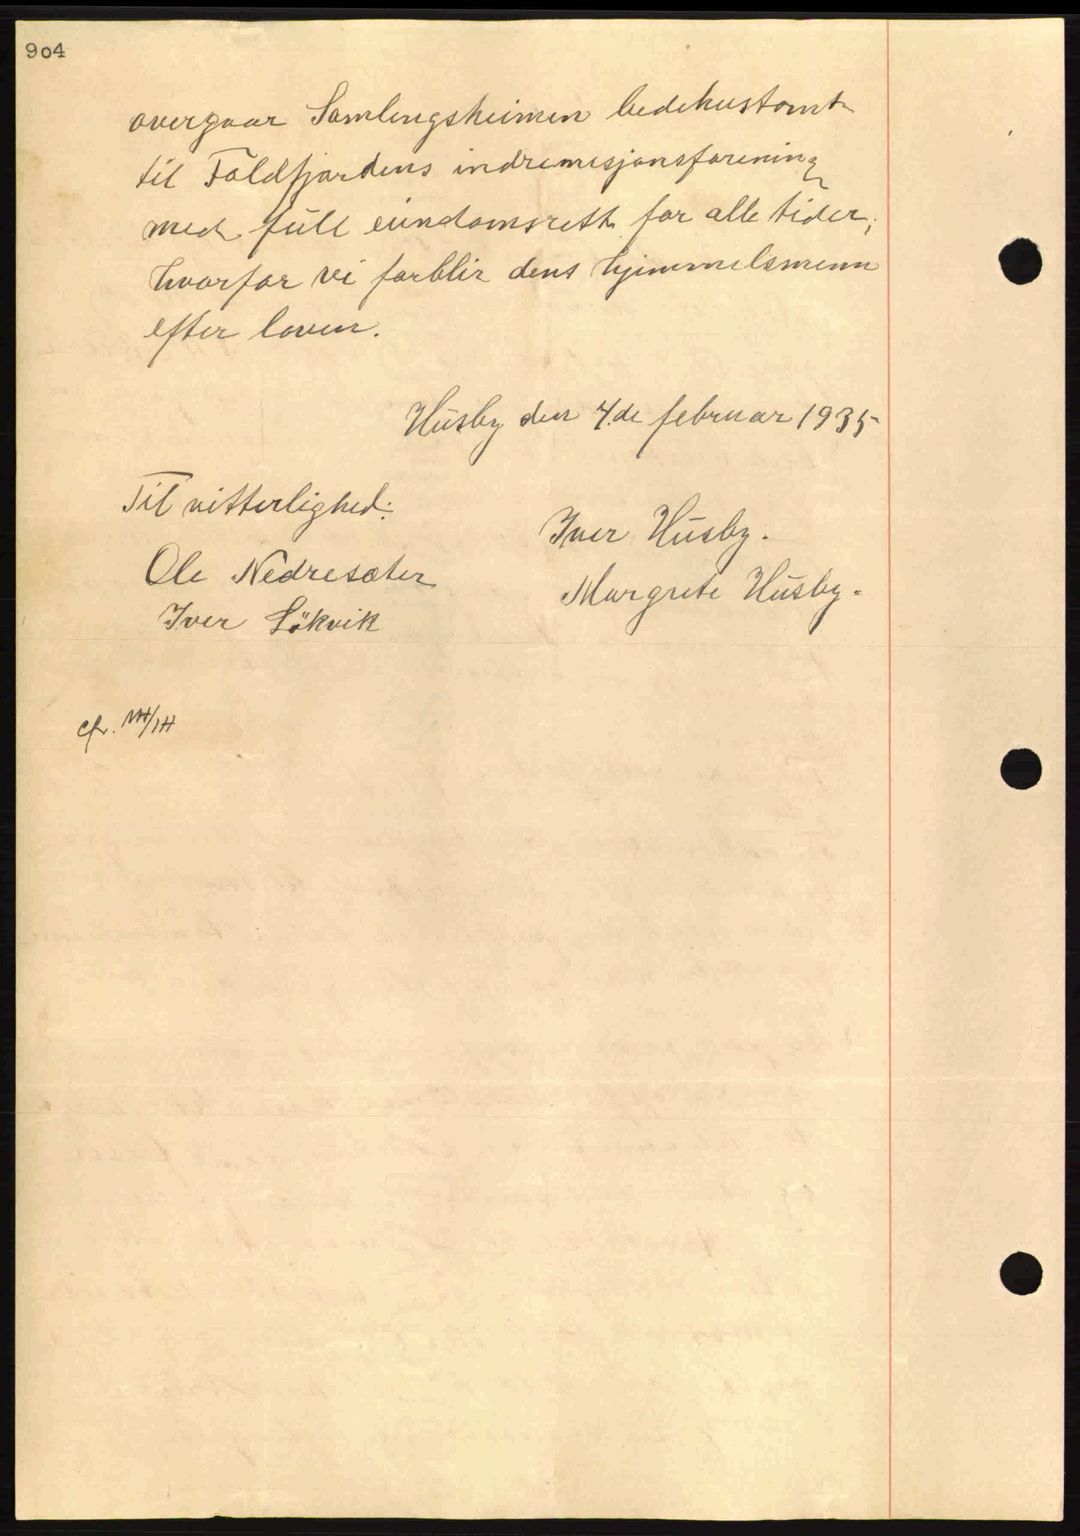 904
overgaar Samlingsheimen bedehustomt
til Foldfjordens indremisjonsforening
med full eiendomsrett for alle tider;
hvorfor vi forblir dens hjemmelsmenn
efter loven.
Husby den 4.de februar 1935
Til vitterlighed:
Iver Husby.
Ole Nedresæter
Margrete Husby.
Iver Sökvik